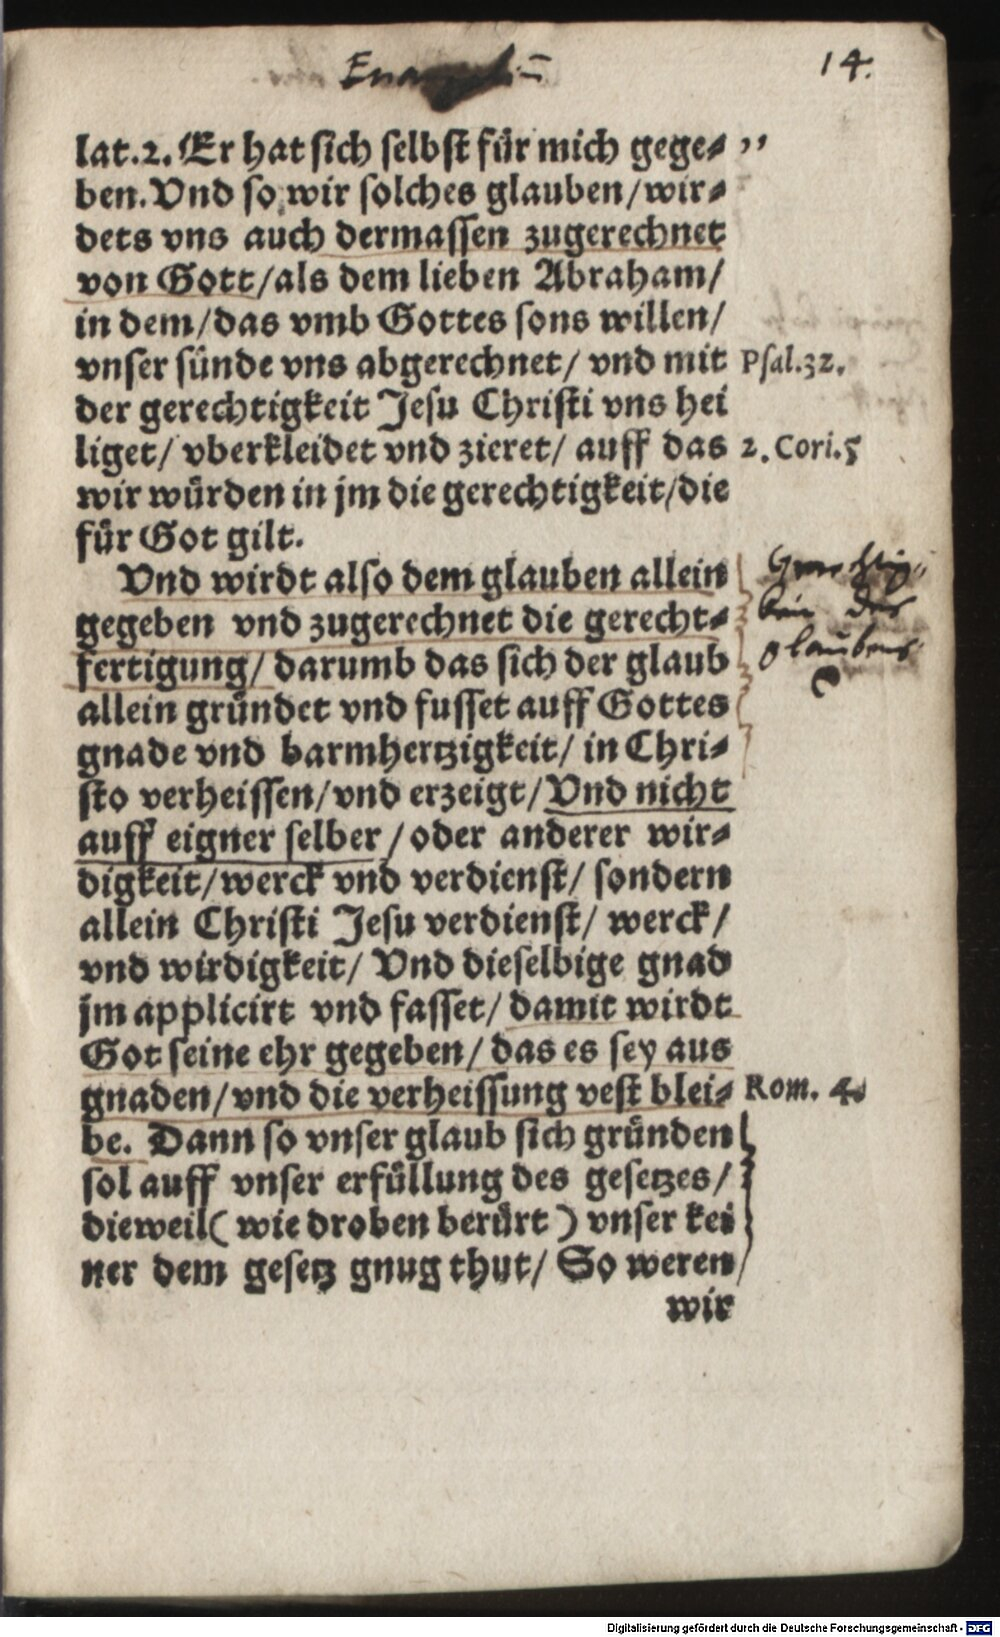 14.
lat.2. Er hat sich selbst für mich gege- ,,
ben. Vnd so wir solches glauben/wir-
dets vns auch dermassen zugerechnet
von Gott/als dem lieben Abraham/
in dem/das vmb Gottes sons willen/
vnser sünde vns abgerechnet/ vnd mit Psal.32.
der gerechtigkeit Jesu Christi vns hei
liget/ vberkleidet vnd zieret/ auff das 2. Cori.5
wir würden in jm die gerechtigkeit/die
für Got gilt.
Vnd wirdt also dem glauben allein
gegeben vnd zugerechnet die gerecht-
fertigung/ darumb das sich der glaub
allein gründet vnd fusset auff Gottes
gnade vnd barmhertzigkeit/ in Chri-
sto verheissen/vnd erzeigt/Vnd nicht
auff eigner selber/oder anderer wir-
digkeit/werck vnd verdienst/ sondern
allein Christi Jesu verdienst/ werck/
vnd wirdigkeit/ Vnd dieselbige gnad
jm applicirt vnd fasset/ damit wirdt
Got seine ehr gegeben/das es sey aus
gnaden/vnd die verheissung vest blei- Rom. 4.
be. Dann so vnser glaub sich gründen
sol auff vnser erfüllung des gesetzes/
dieweil( wie droben berürt ) vnser kei
ner dem gesetz gnug thut/ So weren
wir
des
glaubens
Digitalisierung gefördert durch die Deutsche Forschungsgemeinschaft - DFG